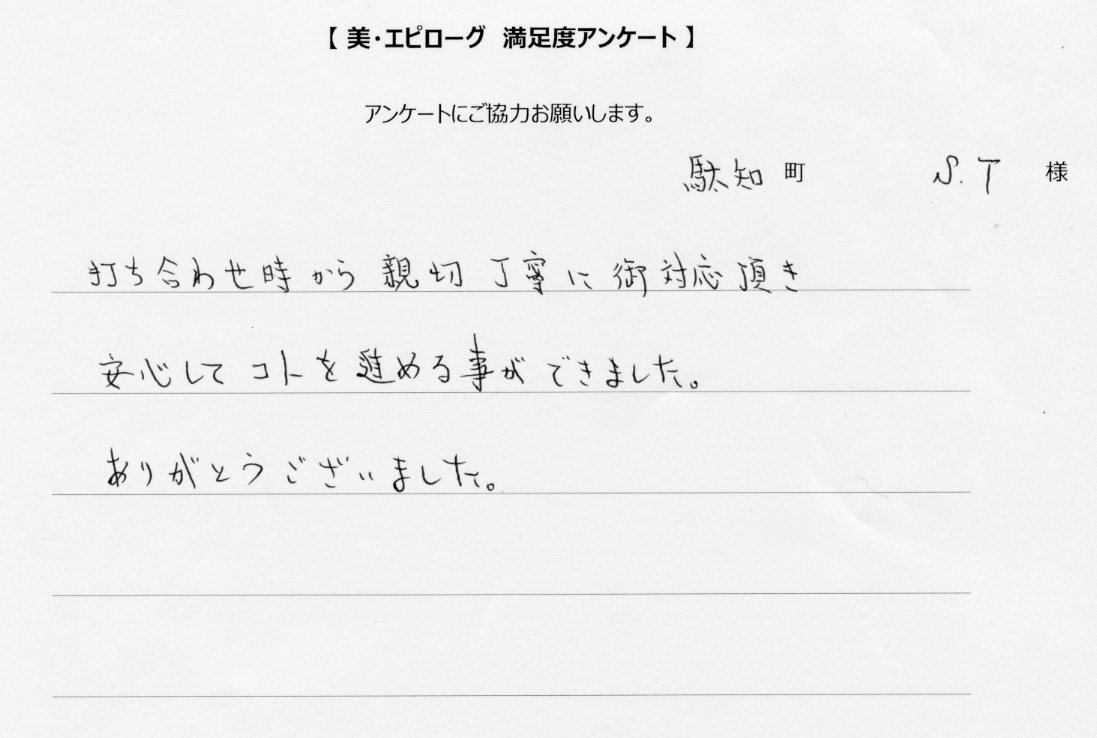 【 美・エピローグ 満足度アンケート 】
アンケートにご協力お願いします。
駄知町 S.T 様
打ち合わせ時から親切丁寧に御対応頂き
安心してコトを進める事ができました。
ありがとうございました。